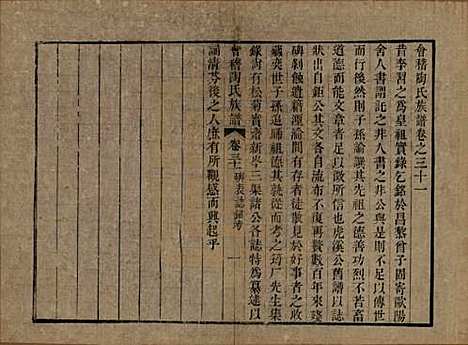 會稽陶氏族譜卷之三十一
昔李習之爲皇祖實錄乞銘於昌黎曾子固寄歐陽
舍人書謂託之非人書之非公與是則不足以傳世
而行後然則子孫論譔其先祖之德善功烈不有蓄
道德而能文章者以發之焉可也虎溪公舊譜以誌
狀出自鉅公其文各自流布不復再贅數百年來殘
碑剩蝕遺籍湮淪間有存者徒散見於好事者之收
藏奕世子孫追誦祖德其孰從而考之琦厂先生集
錄尚有松菊賁齋新岑三渠諸公各誌特爲纂述以
會稽陶氏族譜 卷三十一 碑表誌銘考 一
誦清芬後之人庶有所觀感而興起乎